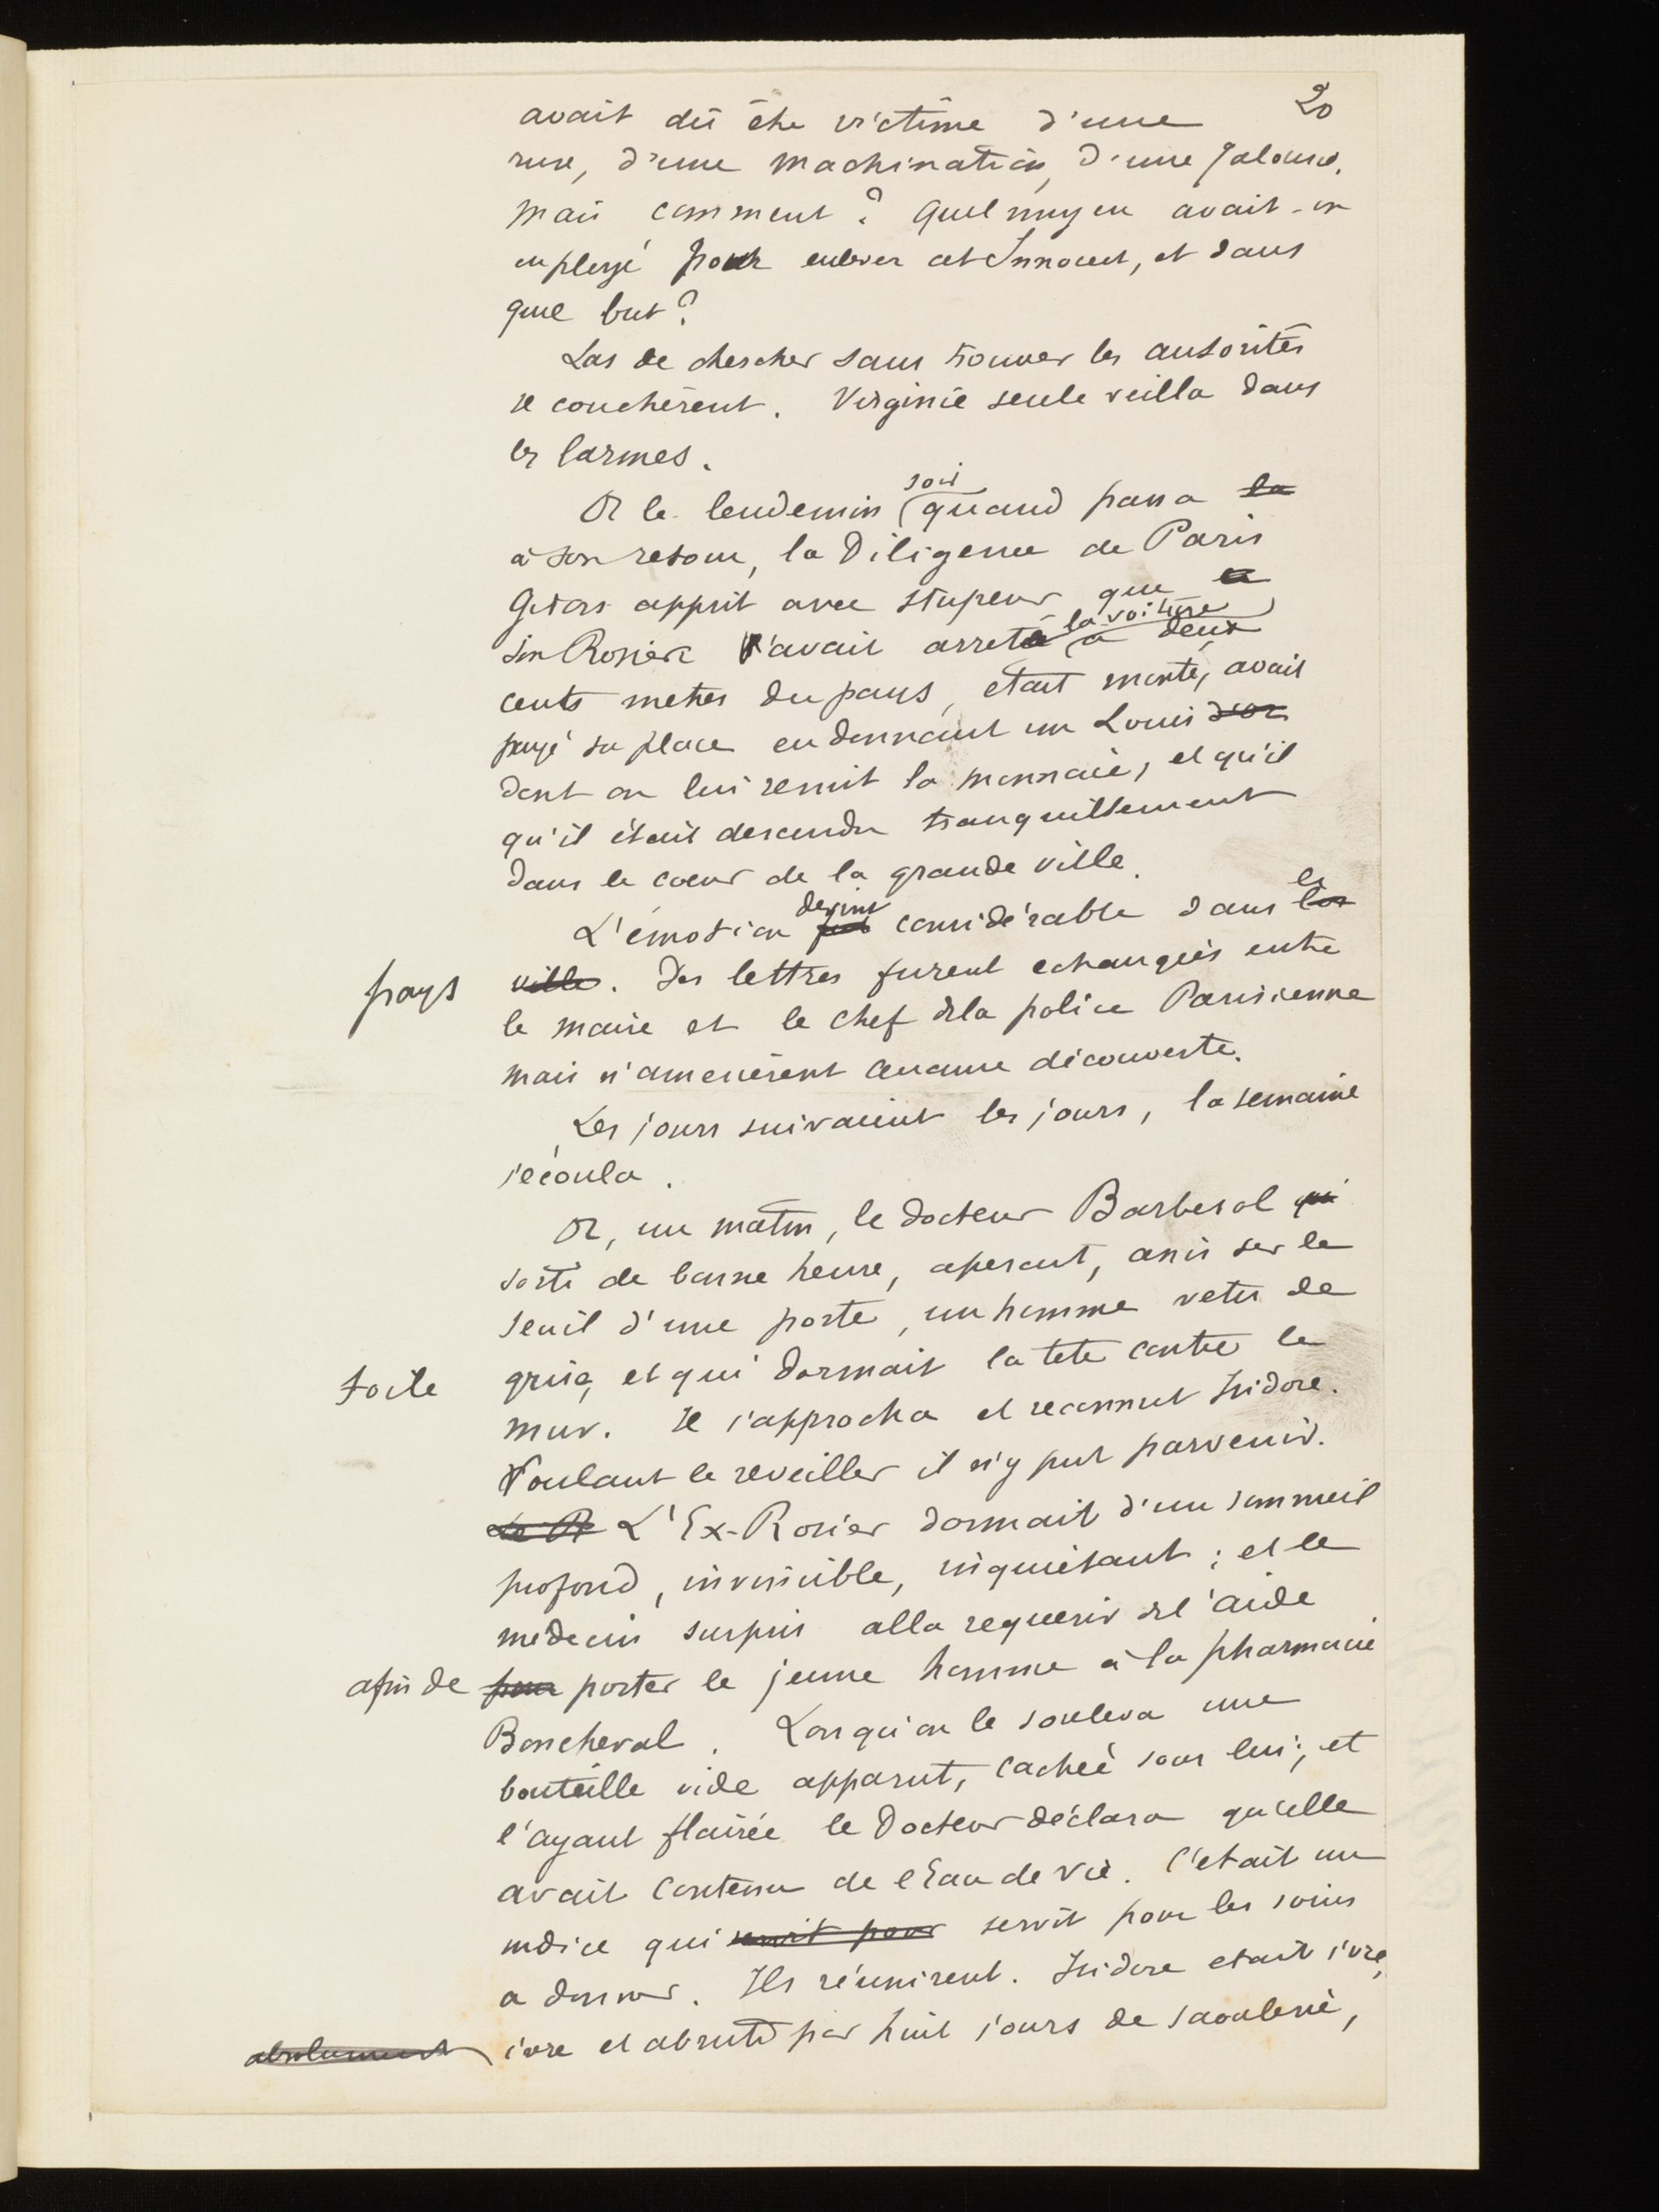 20
avait dû être victime d'une
ruse, d'une machination, d'une jalousie.
Mais comment ? Quel moyen avait-on
employé pour enlever cet Innocent, et dans
quel but ?
Las de chercher sans trouver les autorités
se couchèrent. Virginie seule veilla dans
les larmes.
Or le lendemin soir quand passa la
à son retour, la Diligence de Paris
Gisors apprit avec stupeur que
son Rosier avait arreté la voiture à deux
cents metres du pays, etait monté, avait
payé sa place en donnant un Louis d'or
dont on lui remit la monnaie, et qu'il
qu'il était descendu tranquillement
dans le coeur de la grande ville.
L'émotion devint considérable dans le
pays ville. Des lettres furent echangées entre
le maire et le chef dela police Parisienne
mais n'amenèrent aucune découverte.
Les jours suivaient les jours, la semaine
s'écoula.
Or, un matin, le docteur Barbesol qui
sorti de bonne heure, aperçut, assis sur le
seuil d'une porte, un homme vetu de
toile grise, et qui dormait la tete contre le
mur. Il s'approcha et reconnut Isidore.
Voulant le reveiller il n'y put parvenir.
Le R L'Ex-Rosier dormait d'un sommeil
profond, invincible, inquiétant ; et le
médecin surpris alla requerir del'aide
afin de pour porter le jeune homme à la pharmacie
Boncheval. Lorsqu'on le souleva une
bouteille vide apparut, cachée sous lui ; et
l'ayant flairée le Docteur déclara qu'elle
avait contenu de l'Eau de vie. C'etait un
indice qui servit pour servit pour les soins
a donner. Ils réussirent. Isidore etait ivre,
absolument ivre et abruti par huit jours de saoulerie,